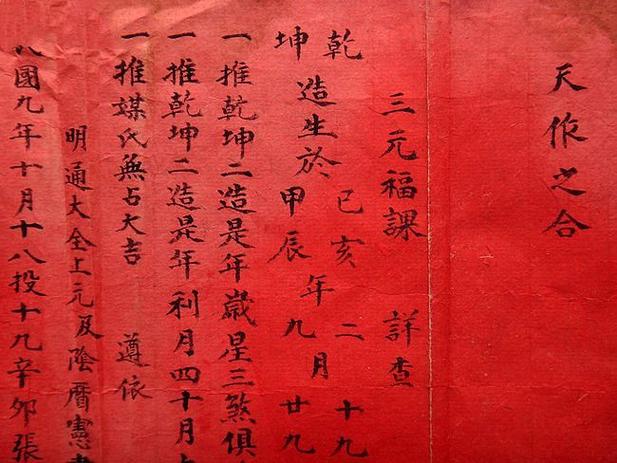 天作之合
三元福課 詳查
乾 已亥 二 十九
造生於 年 月
坤 甲辰 九 廿九
一推乾坤二造是年歲星三煞俱
一推乾坤二造是年利月四十月
一推媒氏無占大吉 遵依
明通大全上元及陰曆憲
國九年十月十八投十九辛卯張